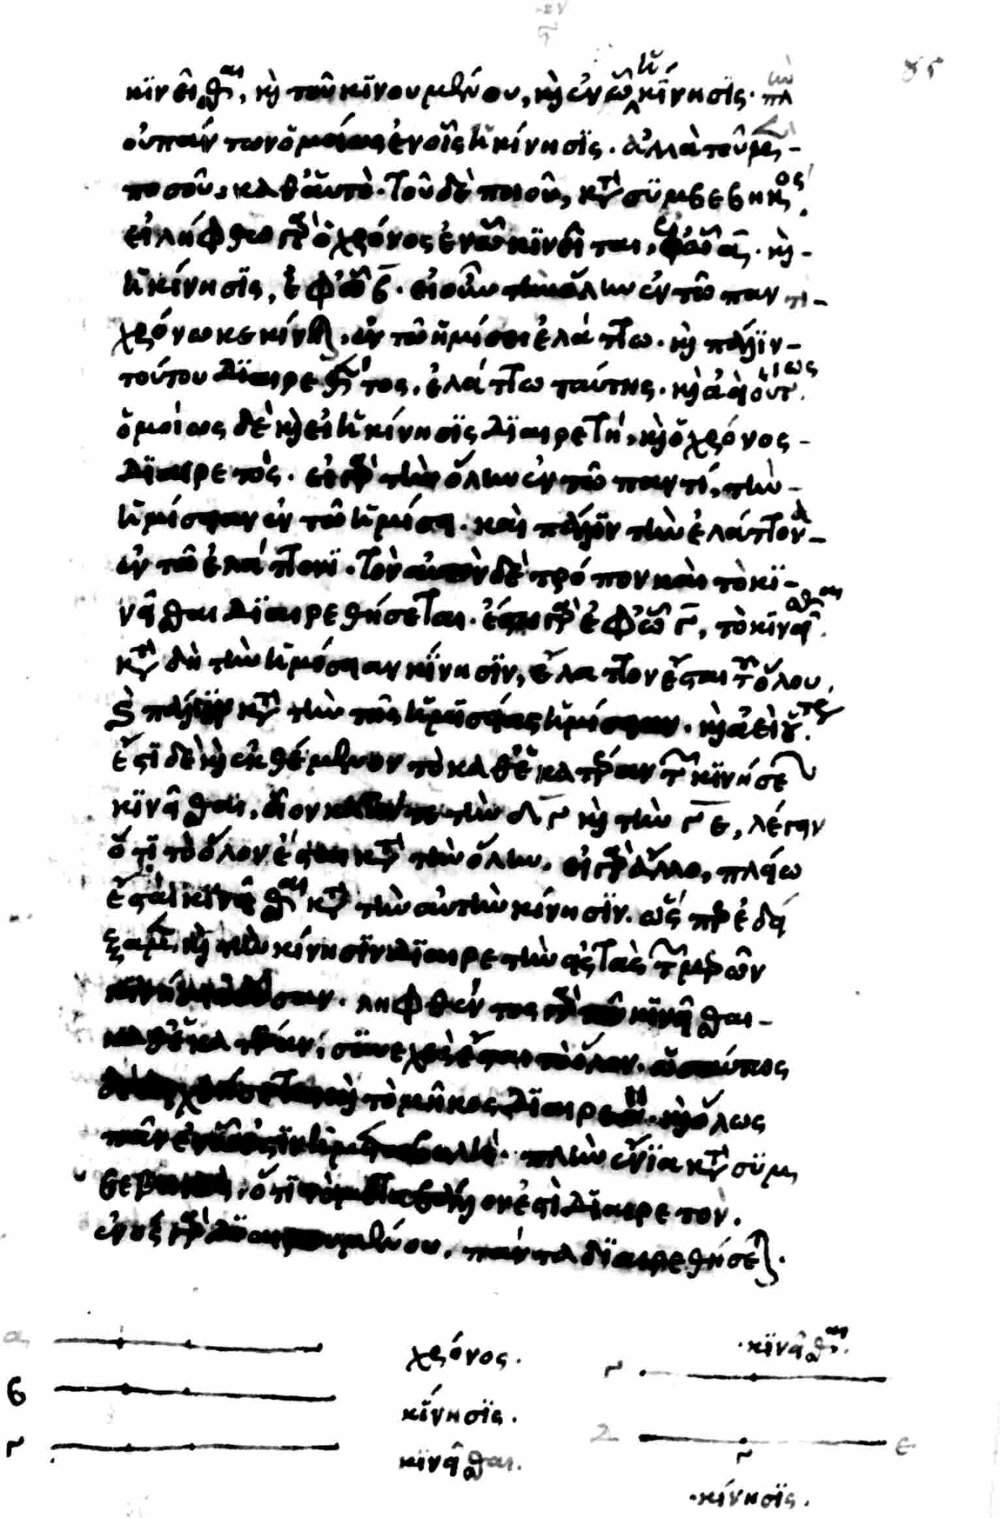 κινεῖσθαι, καὶ τοῦ κινουμένου, καὶ ἐν ᾧ ἡ κίνησις. πλὴν
οὐ πάντων ὁμοίως ἐν οἷς ἡ κίνησις. ἀλλὰ τοῦ μὲν
ποσοῦ, καθ' αὑτό. τοῦ δὲ ποιοῦ, κατὰ συμβεβηκός.
εἰλήφθω γὰρ ὁ χρόνος ἐν ᾧ κινεῖται, ἐφ' ᾧ α. καὶ
ἡ κίνησις, ἐφ' ᾧ β. εἰ οὖν τὴν ὅλην ἐν τῷ παντὶ
χρόνῳ κεκίνηται, ἐν τῷ ἡμίσει ἐλάττω. καὶ πάλιν
τούτου διαιρεθέντος, ἐλάττω ταύτης. καὶ ἀεὶ οὕτως
ὁμοίως δὲ καὶ εἰ ἡ κίνησις διαιρετή, καὶ ὁ χρόνος
διαιρετός. εἰ γὰρ τὴν ὅλην ἐν τῷ παντί, τὴν
ἡμίσειαν ἐν τῷ ἡμίσει. καὶ πάλιν τὴν ἐλάττονα
ἐν τῷ ἐλάττονι. τὸν αὐτὸν δὲ τρόπον καὶ τὸ κι-
νεῖσθαι διαιρεθήσεται. ἔστω γὰρ ἐφ' ᾧ γ, τὸ κινεῖσθαι
κατὰ δὴ τὴν ἡμίσειαν κίνησιν, ἔλαττον ἔσται τοῦ ὅλου,
καὶ πάλιν κατὰ τὴν τῆς ἡμισείας ἡμίσειαν. καὶ ἀεὶ οὕτως
ἔστι δὲ καὶ ἐκθέμενον τὸ καθ' ἑκατέραν τῶν κινήσεων
κινεῖσθαι, οἷον κατά τε τὴν δγ καὶ τὴν γε, λέγειν
ὅτι τὸ ὅλον ἔσται κατὰ τὴν ὅλην. εἰ γὰρ ἄλλο, πλείω
ἔσται κινεῖσθαι κατὰ τὴν αὐτὴν κίνησιν. ὥσπερ ἐδεί
ξαμεν καὶ τὴν κίνησιν διαιρετὴν εἰς τὰς τῶν μερῶν
κινήσεις οὖσαν. ληφθέντος γὰρ τοῦ κινεῖσθαι
καθ' ἑκατέραν, συνεχὲς ἔσται τὸ ὅλον. ὡσαύτως
δειχθήσεται καὶ τὸ μῆκος διαιρετόν. καὶ ὅλως
πᾶν ἐν ᾧ ἐστιν ἡ μεταβολή. πλὴν ἔνια κατὰ συμ
βεβηκός, ὅτι τὸ μεταβάλλον ἐστὶ διαιρετόν.
ἑνὸς γὰρ διαιρουμένου, πάντα διαιρεθήσεται.
α χρόνος.
β κίνησις.
γ κινεῖσθαι.
γ κινεῖσθαι.
δ γ ε
κίνησις.